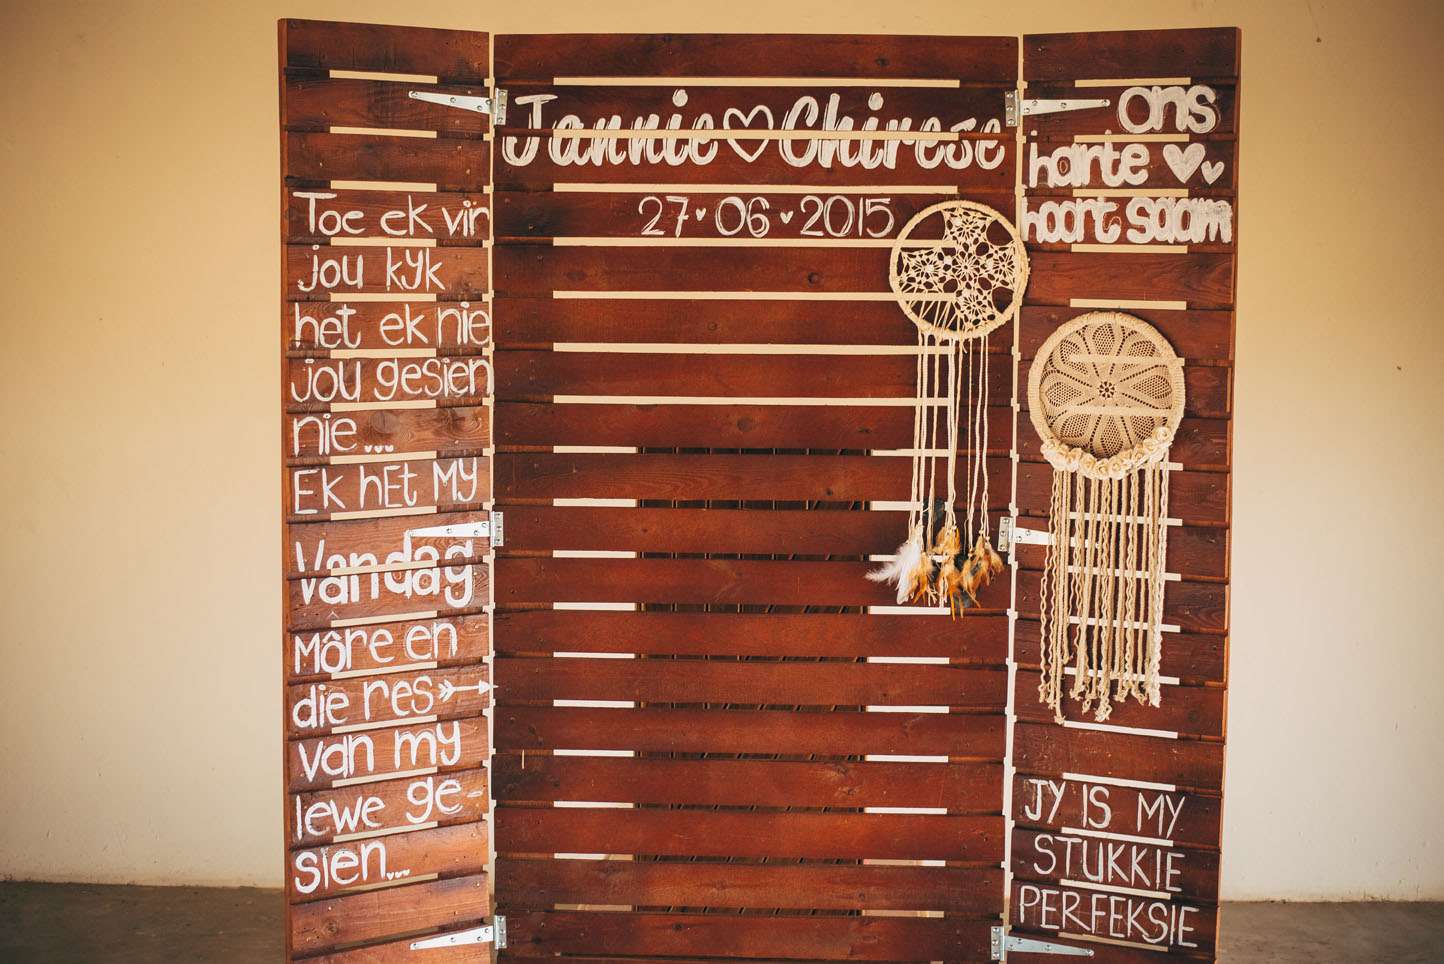 Toe ek vir
jou kyk
het ek nie
jou gesien
nie...
Ek hEt My
Vandag
Môre en
die res
van my
lewe ge-
sien...
Jannie ♡ Chirese
27 ♥ 06 ♥ 2015
ons
harte ♥♥
hoort saam
JY IS MY
STUKKIE
PERFEKSIE